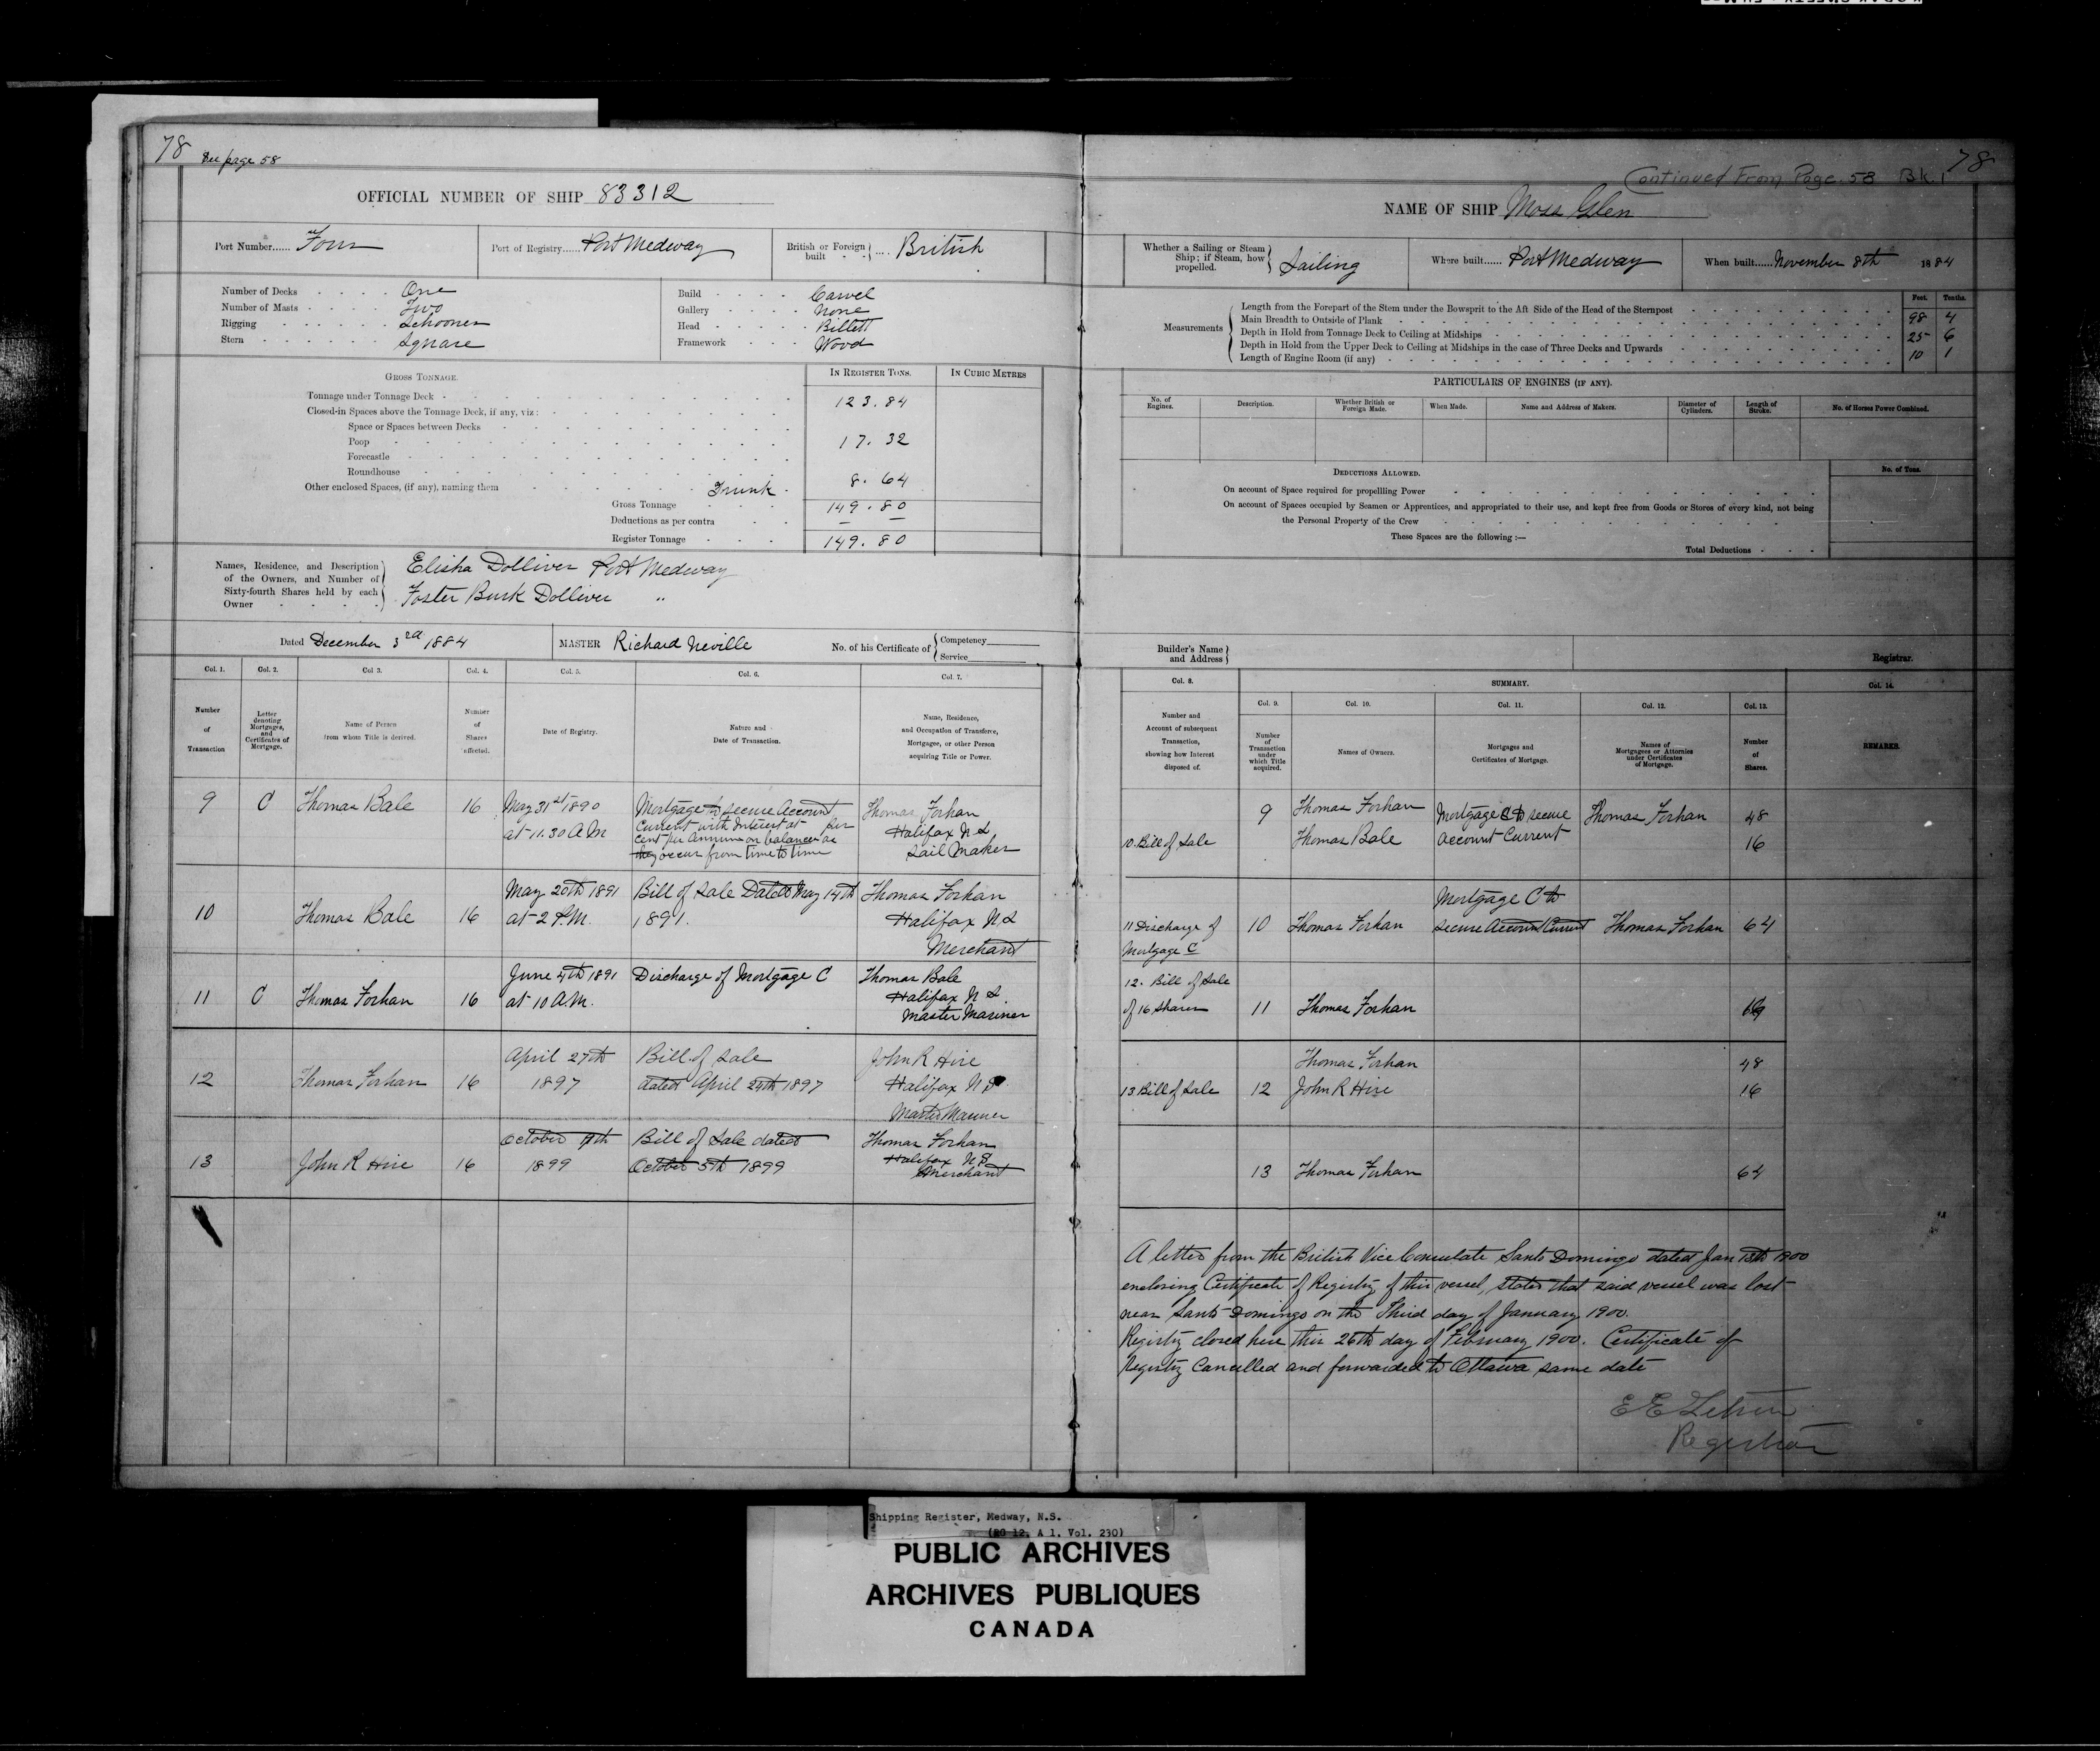 78 See page 58
OFFICIAL NUMBER OF SHIP 83312
Port Number...... Four
Port of Registry...... Port Medway
British or Foreign built .... British
Number of Decks One
Number of Masts Two
Rigging Schooner
Stern Square
Build Carvel
Gallery None
Head Billett
Framework Wood
GROSS TONNAGE.
IN REGISTER TONS.
IN CUBIC METRES
Tonnage under Tonnage Deck 123.84
Closed-in Spaces above the Tonnage Deck, if any, viz:
Space or Spaces between Decks
Poop 17.32
Forecastle
Roundhouse
Other enclosed Spaces, (if any), naming them Trunk 8.64
Gross Tonnage 149.80
Deductions as per contra — —
Register Tonnage 149.80
Names, Residence, and Description of the Owners, and Number of Sixty-fourth Shares held by each Owner
Elisha Dolliver Port Medway
Foster Burk Dolliver "
Dated December 3rd 1884
MASTER Richard Neville
No. of his Certificate of Competency Service
Col. 1. Col. 2. Col 3. Col. 4. Col. 5. Col. 6. Col. 7.
Number of Transaction
Letter denoting Mortgages, and Certificates of Mortgage.
Name of Person from whom Title is derived.
Number of Shares affected.
Date of Registry.
Nature and Date of Transaction.
Name, Residence, and Occupation of Transferee, Mortgagee, or other Person acquiring Title or Power.
9 C Thomas Bale 16
May 31st 1890
at 11.30 A.M
Mortgage to secure Account
Current with Interest at per
Cent per Annum on balances as
they occur from time to time
Thomas Forhan
Halifax N S
Sail Maker
10 Thomas Bale 16
May 20th 1891
at 2 P.M.
Bill of Sale Dated May 14th
1891.
Thomas Forhan
Halifax N S
Merchant
11 C Thomas Forhan 16
June 4th 1891
at 10 A.M.
Discharge of Mortgage C
Thomas Bale
Halifax N S.
Master Mariner
12 Thomas Forhan 16
April 27th
1897
Bill of Sale
dated April 24th 1897
John R Hire
Halifax N S
Master Mariner
13 John R Hire 16
October
1899
Bill of Sale dated
October 5th 1899
Thomas Forhan
Halifax N S
Merchant
78
Continued From Page 58 Bk. 1
NAME OF SHIP Moss Glen
Whether a Sailing or Steam Ship; if Steam, how propelled. Sailing
Where built...... Port Medway
When built...... November 8th 1884
Measurements
Feet. Tenths.
Length from the Forepart of the Stem under the Bowsprit to the Aft Side of the Head of the Sternpost 98 4
Main Breadth to Outside of Plank 25 6
Depth in Hold from Tonnage Deck to Ceiling at Midships 10 1
Depth in Hold from the Upper Deck to Ceiling at Midships in the case of Three Decks and Upwards
Length of Engine Room (if any)
PARTICULARS OF ENGINES (IF ANY).
No. of Engines.
Description.
Whether British or Foreign Made.
When Made.
Name and Address of Makers.
Diameter of Cylinders.
Length of Stroke.
No. of Horses Power Combined.
DEDUCTIONS ALLOWED.
No. of Tons.
On account of Space required for propellling Power
On account of Spaces occupied by Seamen or Apprentices, and appropriated to their use, and kept free from Goods or Stores of every kind, not being
the Personal Property of the Crew
These Spaces are the following :—
Total Deductions
Builder's Name and Address
Registrar.
Col. 8.
SUMMARY.
Col. 14.
Col. 9. Col. 10. Col. 11. Col. 12. Col. 13.
Number and Account of subsequent Transaction, showing how Interest disposed of.
Number of Transaction under which Title acquired.
Names of Owners.
Mortgages and Certificates of Mortgage.
Names of Mortgagees or Attornies under Certificates of Mortgage.
Number of Shares.
REMARKS.
10. Bill of Sale
9
Thomas Forhan
Thomas Bale
Mortgage C to secure
Account Current
Thomas Forhan
48
16
11 Discharge of
Mortgage C
10 Thomas Forhan
Mortgage C to
secure Account Current
Thomas Forhan 64
12. Bill of Sale
of 16 Shares
11 Thomas Forhan
13 Bill of Sale
12
Thomas Forhan 48
John R Hire 16
13 Thomas Forhan 64
A letter from the British Vice Consulate Santo Domingo dated Jan 13th 1900
enclosing Certificate of Registry of this vessel, states that said vessel was lost
near Santo Domingo on the Third day of January 1900.
Registry closed here this 26th day of February 1900. Certificate of
Registry Cancelled and forwarded to Ottawa same date
E E Letson
Registrar
Shipping Register, Medway, N.S.
(RG 12, A 1, Vol. 230)
PUBLIC ARCHIVES
ARCHIVES PUBLIQUES
CANADA